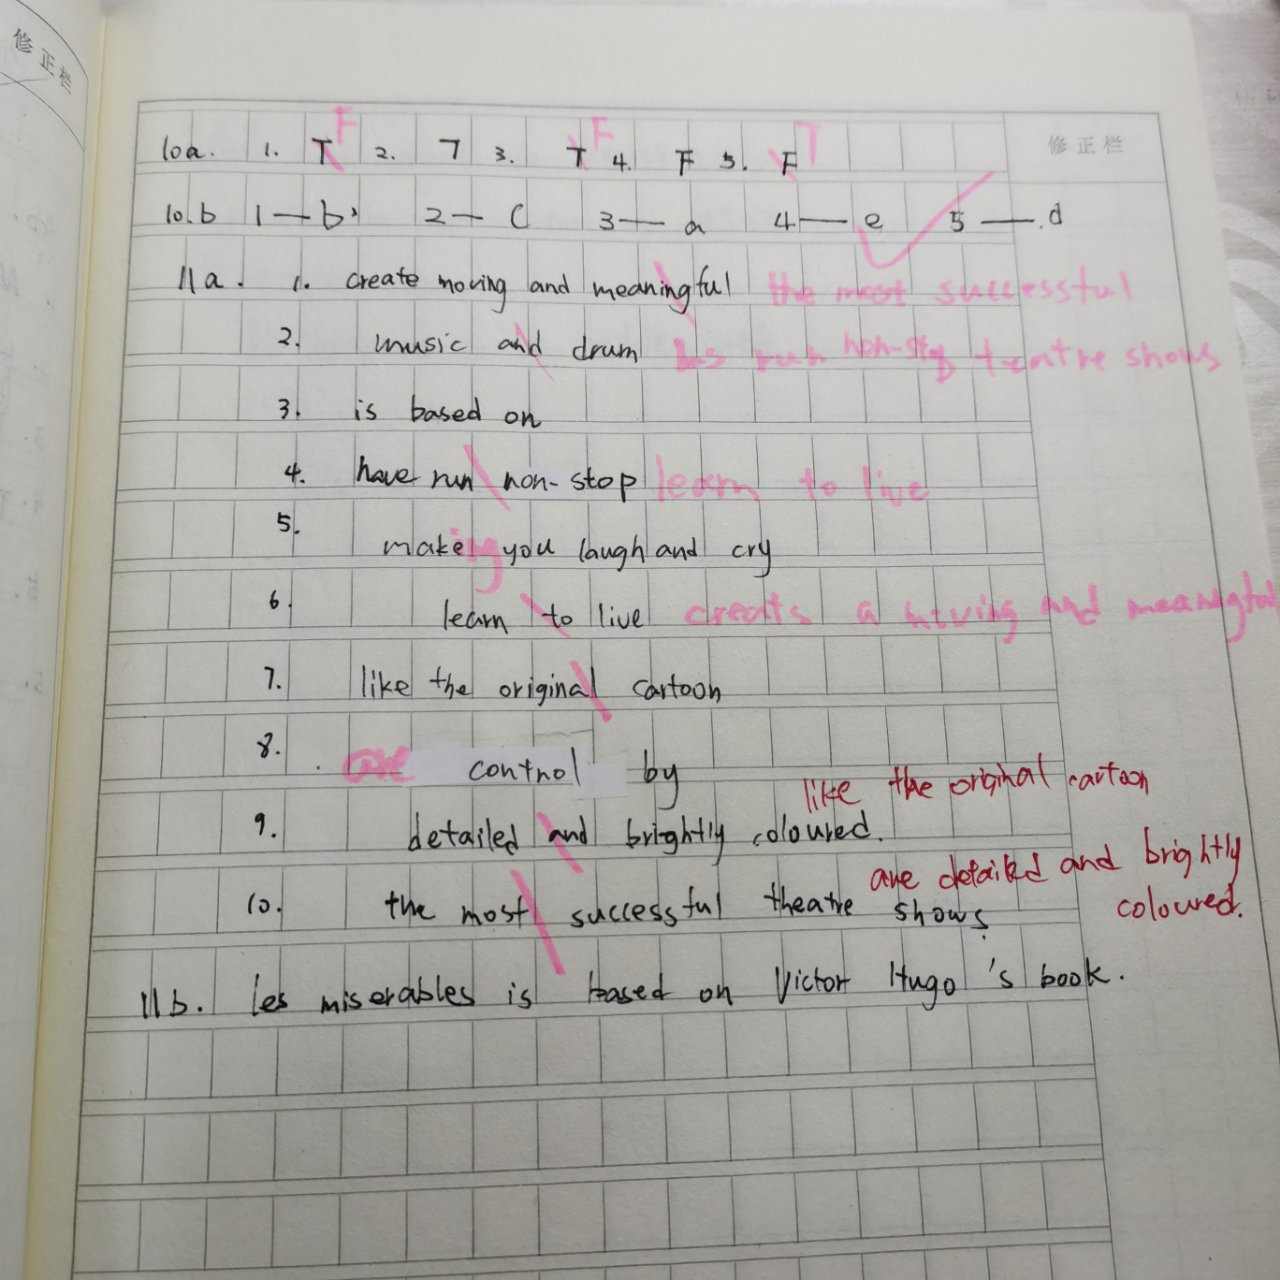 修正栏
修正栏
10a. 1. T F 2. T 3. T F 4. F 5. F T
10.b 1—b, 2—C 3—a 4—e 5—.d
11a. 1. create moving and meaningful the most successful
2. music and drum has run non-stop teatre shows
3. is based on
4. have run non-stop learn to live
5. makeing you laugh and cry
6. learn to live creats a moving and meaningful
7. like the original cartoon
8. are control by
like the original cartoon
9. detailed and brightly coloured.
are detailed and brightly coloured.
10. the most successful theatre shows.
11b. les miserables is based on Victor Hugo's book.